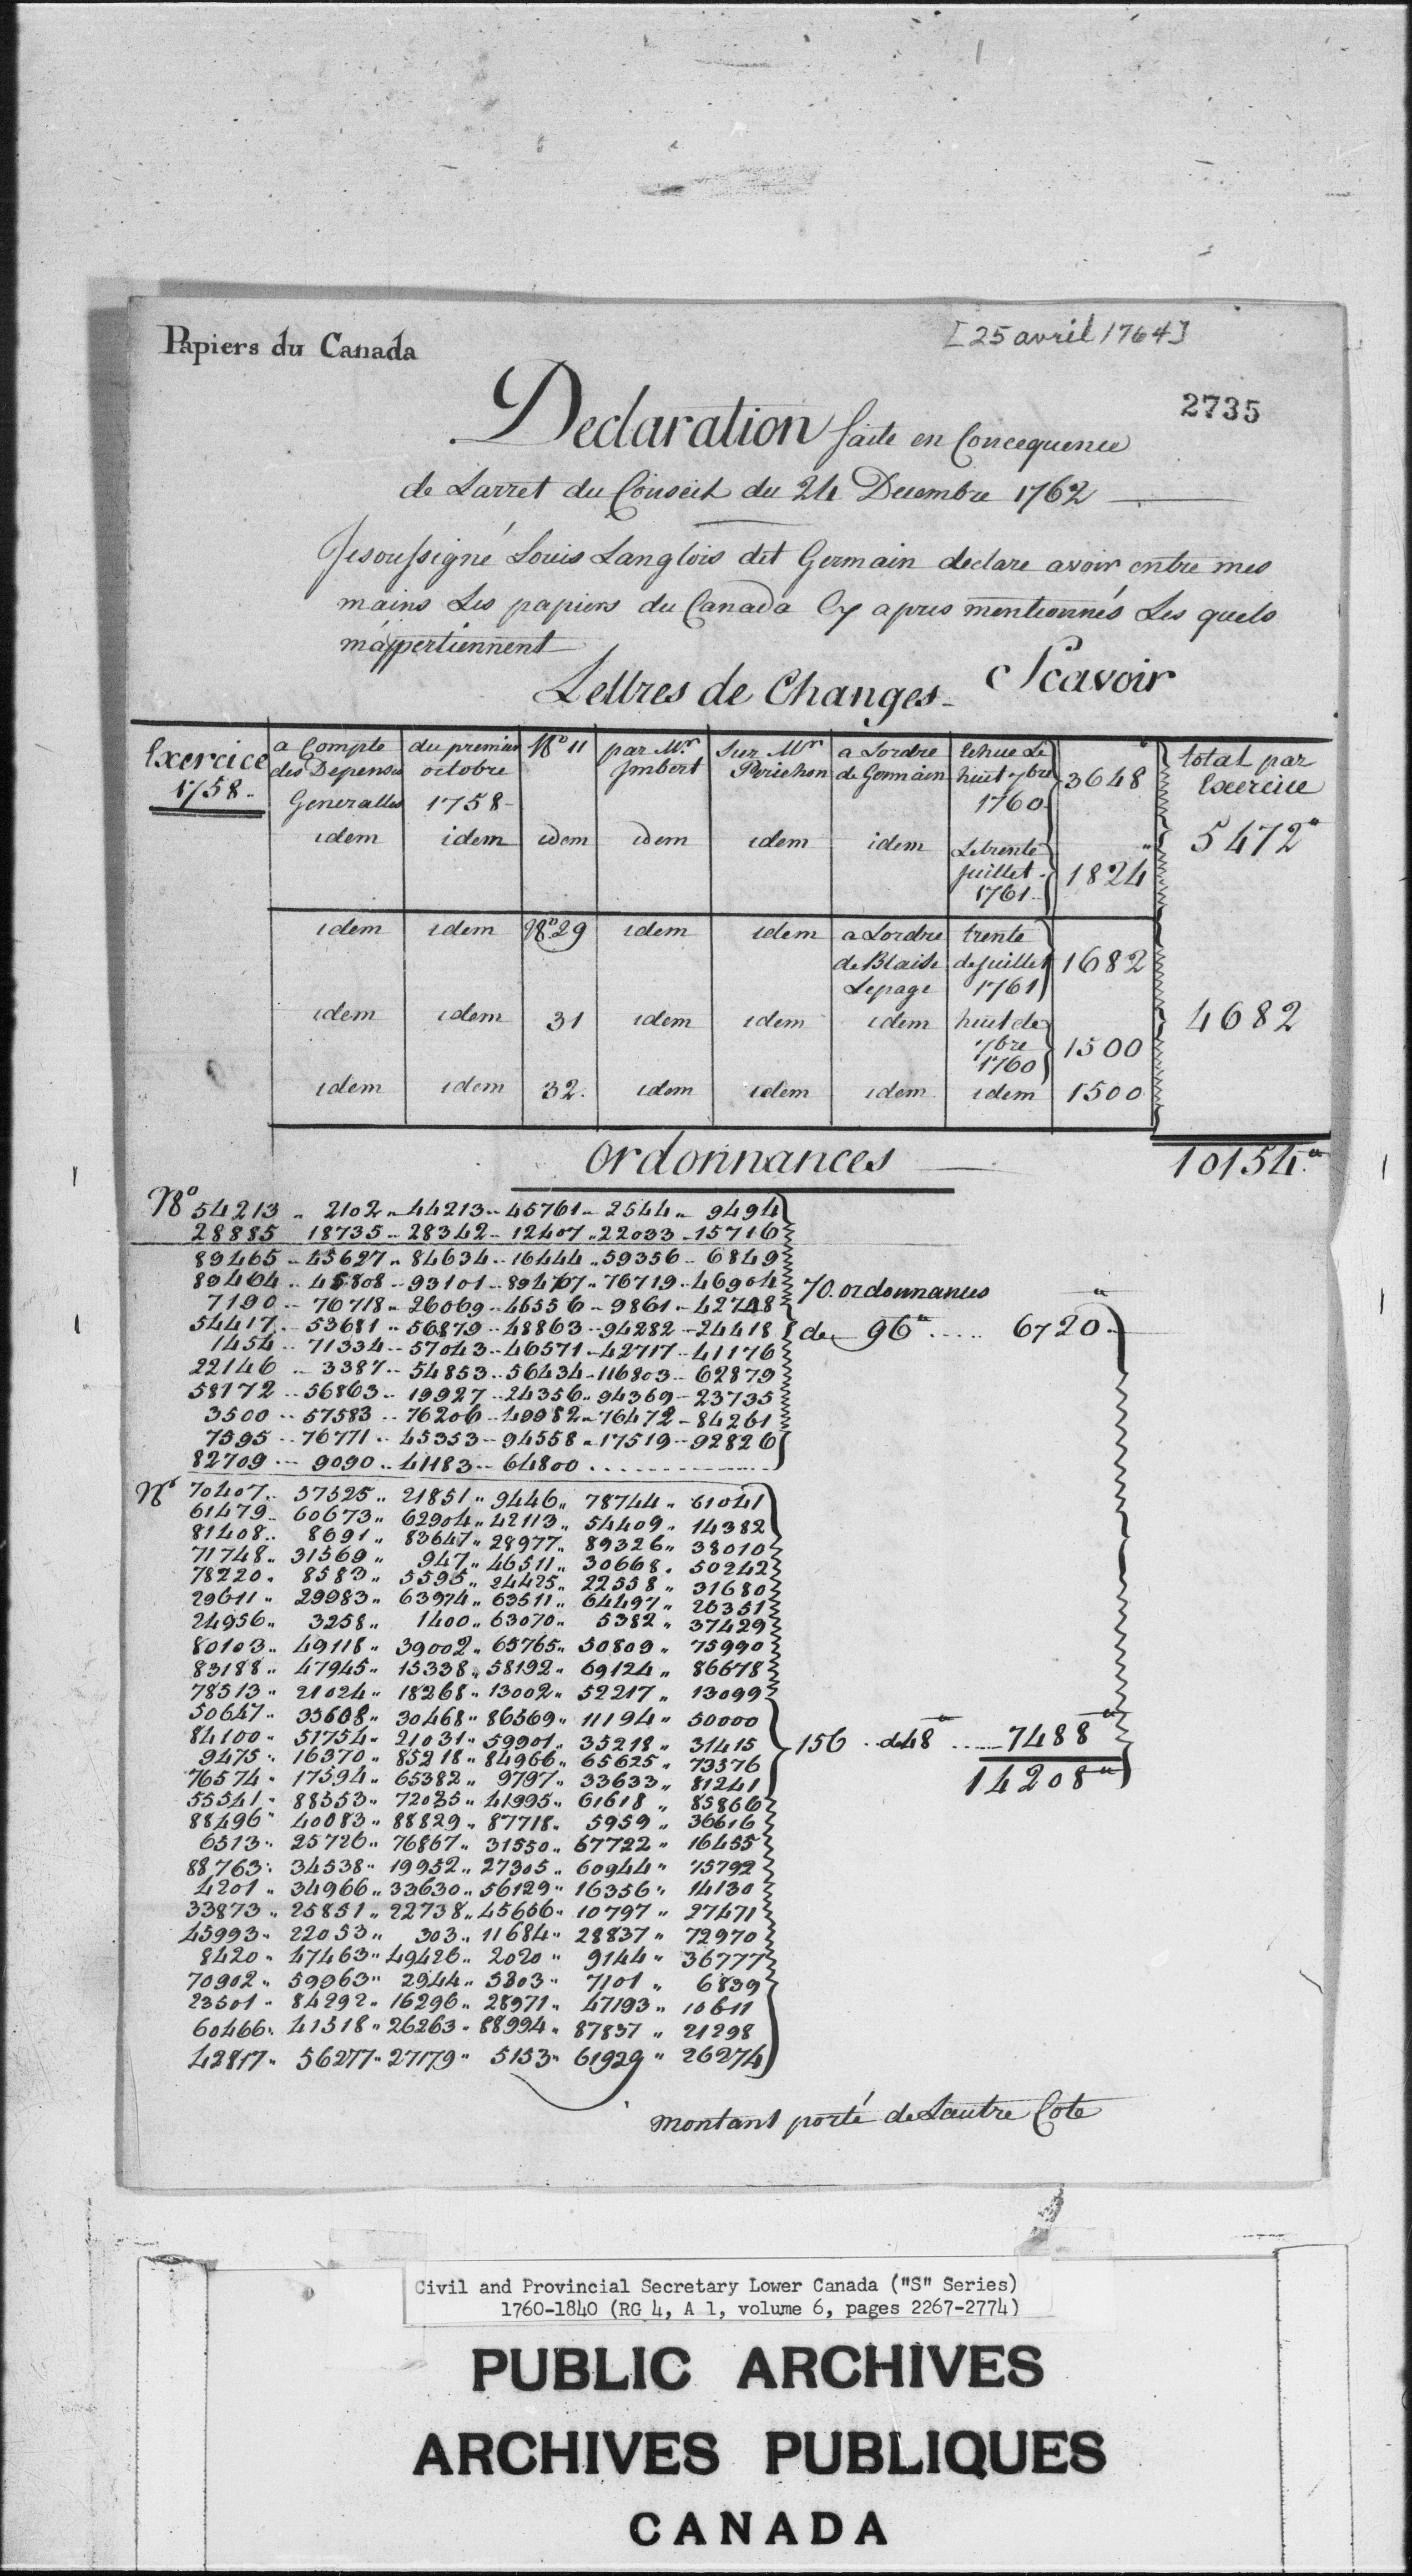 Papiers du Canada
[25 avril 1764]
2735
Declaration faite en Concequence
de Larret du Conseil du 24 Decembre 1762
Jesoussigné Louis Langlois dit Germain declare avoir entre mes
mains Les papiers du Canada Cy apres mentionnés Les quels
m'appertiennent
Scavoir
Lettres de Changes
Exercice 1758. a Compte des Depenses Generalles du premier octobre 1758 No 11 par Mr Jmbert Sur Mr Perichon a Lordre de Germain Echue Le huit 7bre 1760 3648 total par Exercice
idem idem idem idem idem idem Le trente juillet 1761 1824 5472
idem idem No 29 idem idem a Lordre de Blaise Lepage trente de juillet 1761 1682
idem idem 31 idem idem idem huit de 7bre 1760 1500 4682
idem idem 32. idem idem idem idem 1500
10154
ordonnances
No 54213 .. 2102 .. 44213 .. 45761 .. 2544 .. 9494
28885 18735 .. 28342 .. 12407 .. 22033 .. 15716
89465 .. 45627 .. 84634 .. 16444 .. 59356 .. 6849
89464 .. 45808 .. 93101 .. 89467 .. 76719 .. 46904
70. ordonnances
7190 .. 76718 .. 26069 .. 46556 .. 9861 .. 42748
54417 .. 53681 .. 56879 .. 48863 .. 94282 .. 24418
de 96 ..... 6720
1454 .. 71334 .. 57043 .. 46571 .. 42717 .. 41176
22146 .. 3387 .. 54853 .. 56434 .. 116803 .. 62879
58172 .. 56863 .. 19927 .. 24356 .. 94369 .. 23735
3500 .. 57583 .. 76206 .. 49982 .. 76472 .. 84261
7595 .. 76771 .. 45353 .. 94558 .. 17519 .. 92826
82709 .. 9090 .. 41183 .. 64800 ..........
No 70407 .. 37525 .. 21851 .. 9446 .. 78744 .. 61041
61479 .. 60673 .. 62904 .. 42113 .. 54409 .. 14382
81408 .. 8691 .. 83647 .. 28977 .. 89326 .. 38010
71748 .. 31569 .. 947 .. 46511 .. 30668 .. 50242
78220 .. 8583 .. 5595 .. 24425 .. 22558 .. 31680
29611 .. 29983 .. 63974 .. 63511 .. 64497 .. 26351
24956 .. 3258 .. 1400 .. 63070 .. 5382 .. 37429
80103 .. 49118 .. 39002 .. 65765 .. 50809 .. 75990
83188 .. 47945 .. 15338 .. 58192 .. 69124 .. 86678
78513 .. 21024 .. 18268 .. 13002 .. 52217 .. 13099
50647 .. 33608 .. 30468 .. 86569 .. 11194 .. 50000
84100 .. 51754 .. 21031 .. 59901 .. 35218 .. 31415
156 .. de 48 ..... 7488
9475 .. 16370 .. 85218 .. 84966 .. 65625 .. 73576
14208
76574 .. 17594 .. 65382 .. 9797 .. 33633 .. 81241
55541 .. 88553 .. 72035 .. 41995 .. 61618 .. 85866
88496 .. 40083 .. 88829 .. 87718 .. 5959 .. 36616
6513 .. 25726 .. 76867 .. 31550 .. 67722 .. 16455
88763 .. 34538 .. 19952 .. 27305 .. 60944 .. 75792
4201 .. 34966 .. 33630 .. 56129 .. 16356 .. 14130
33873 .. 25851 .. 22738 .. 45656 .. 10797 .. 27471
45993 .. 22053 .. 303 .. 11684 .. 28837 .. 72970
8420 .. 47463 .. 49426 .. 2020 .. 9144 .. 36777
70902 .. 59963 .. 2944 .. 5803 .. 7101 .. 6839
23501 .. 84292 .. 16296 .. 28971 .. 47193 .. 10611
60466 .. 41518 .. 26263 .. 88994 .. 87837 .. 21298
42817 .. 56277 .. 27179 .. 5153 .. 61929 .. 26274
montant porté de Lautre Cote
Civil and Provincial Secretary Lower Canada ("S" Series)
1760-1840 (RG 4, A 1, volume 6, pages 2267-2774)
PUBLIC ARCHIVES
ARCHIVES PUBLIQUES
CANADA